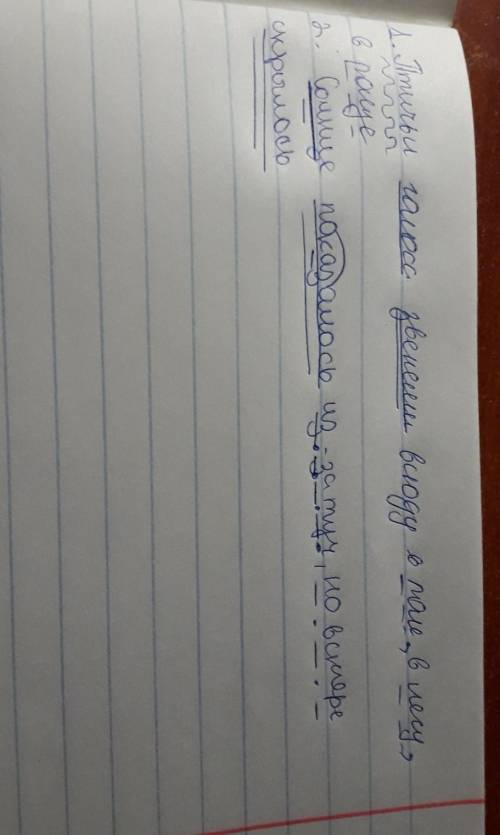 1. Птичьи голоса звенели всюду в поле, в лесу,
в роще
2. Солнце показалось из-за туч, но вскоре
скрылось